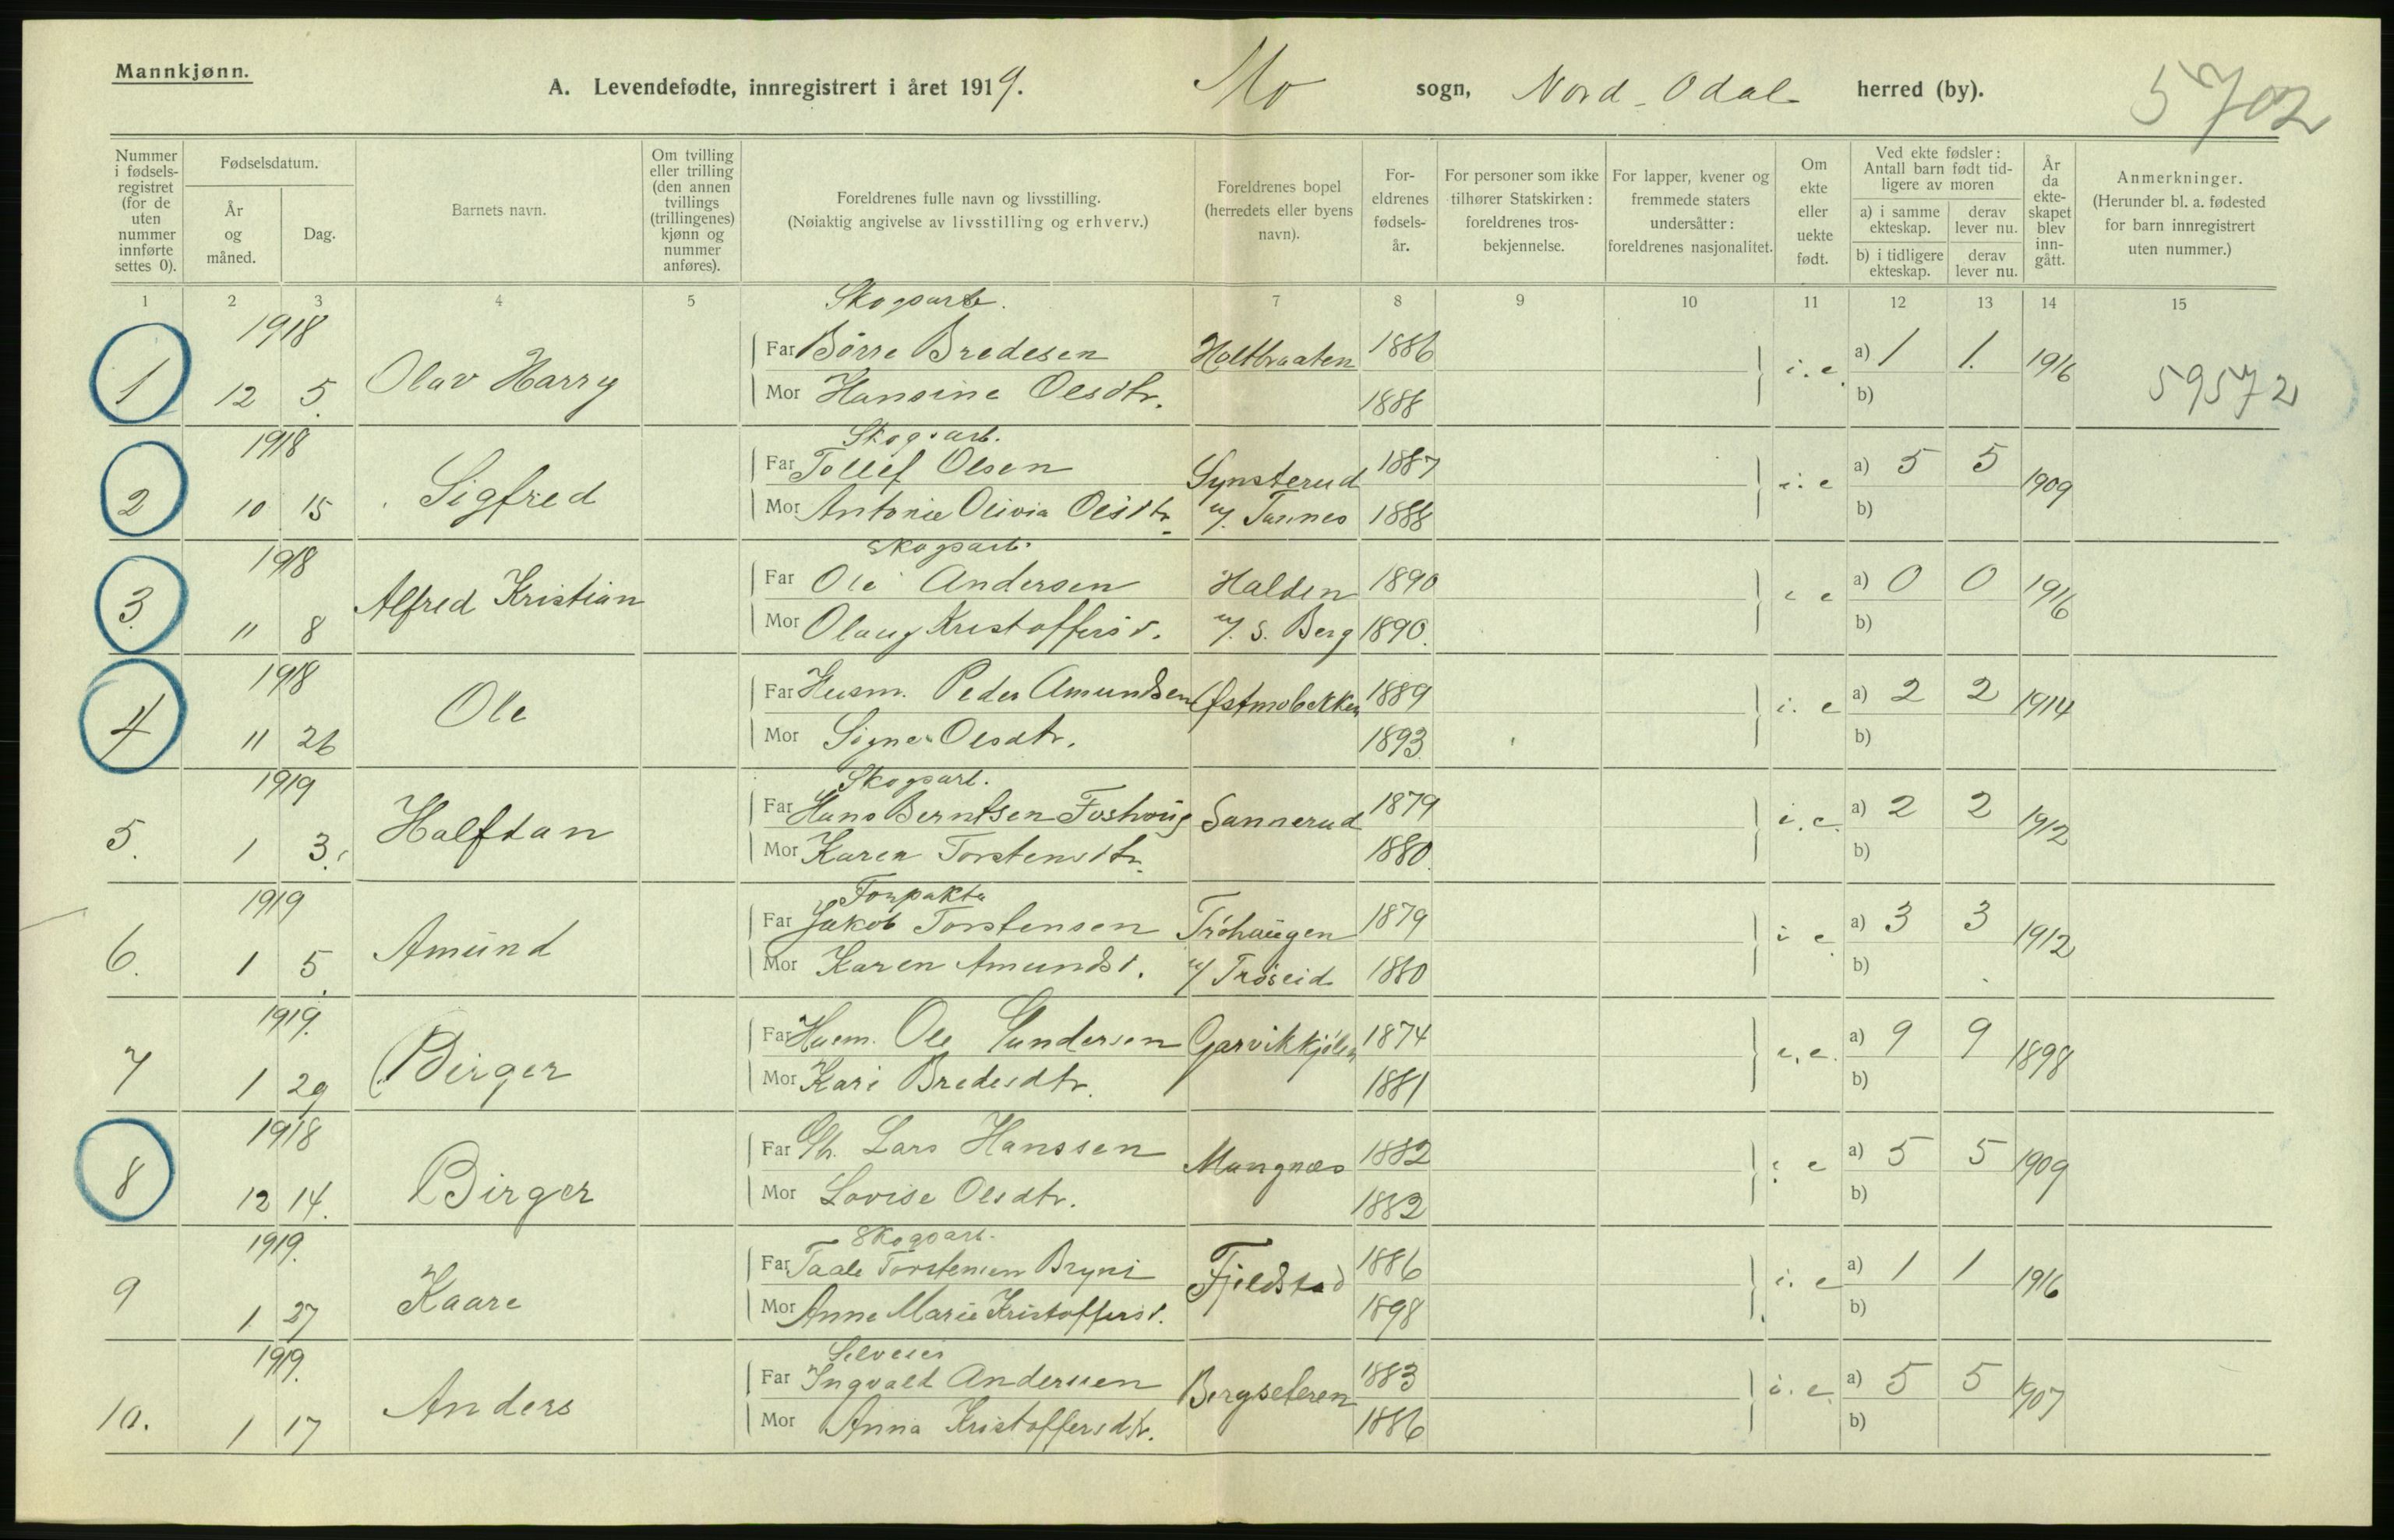 Mannkjønn.
A. Levendefødte, innregistrert i året 1919. Mo sogn, Nord-Odal herred (by). 5702
Nummer i fødselsregistret (for de uten nummer innførte settes 0).
Fødselsdatum.
År og måned.
Dag.
Barnets navn.
Om tvilling eller trilling (den annen tvillings (trillingenes) kjønn og nummer anføres).
Foreldrenes fulle navn og livsstilling.
(Nøiaktig angivelse av livsstilling og erhverv.)
Foreldrenes bopel (herredets eller byens navn).
Foreldrenes fødselsår.
For personer som ikke tilhører Statskirken: foreldrenes trosbekjennelse.
For lapper, kvener og fremmede staters undersåtter: foreldrenes nasjonalitet.
Om ekte eller uekte født.
Ved ekte fødsler: Antall barn født tidligere av moren
a) i samme ekteskap. derav lever nu.
b) i tidligere ekteskap. derav lever nu.
År da ekteskapet blev inngått.
Anmerkninger.
(Herunder bl. a. fødested for barn innregistrert uten nummer.)
1 2 3 4 5 7 8 9 10 11 12 13 14 15
Skogsarb.
1918
1 12 5. Olav Harry Far Börre Bredesen Holtbraaten 1886 i. e. a) 1 1. 1916 59572
Mor Hansine Olsdtr. 1888 b)
1918 Skogsarb.
2 10 15 Sigfred Far Tollef Olsen Synsterud 1887 i. e a) 5 5 1909
Mor Antonie Olivia Olsdtr. u/. Tannes 1888 b)
1918 Skogsarb.
3. 11 8 Alfred Kristian Far Ole Andersen Halden 1890 i e a) 0 0 1916
Mor Olaug Kristoffersd. u/. S. Berg 1890. b)
1918
4 11 26 Ole Far Husm. Peder Amundsen Østmobekken 1889 i. e a) 2 2 1914
Mor Signe Olsdtr. 1893 b)
1919 Skogsarb.
5. 1 3. Halfdan Far Hans Berntsen Foshoug Sannerud 1879 i. e. a) 2 2 1912
Mor Karen Torstensdtr. 1880 b)
1919
6. 1 5. Amund Far Jakob Torstensen Tröhaugen 1879 i e. a) 3 3 1912
Mor Karen Amundsd. u/ Tröseid 1880 b)
1919.
7 1 29 Birger Far Husm. Ole Gundersen Garvikkjölen 1874 i. e. a) 9 9 1898
Mor Kari Bredesdtr. 1881 b)
1918
8 12 14. Birger Far Lars Hanssen Mangnæs 1882 i e a) 5 5 1909
Mor Lovise Olsdtr. 1882 b)
1919. Skogsarb.
9 1 27 Kaare Far Taale Torstensen Bryni Fjeldstad 1886 i. e a) 1 1 1916
Mor Anne Marie Kristoffersd. 1898 b)
1919. Selveier
10. 1 17 Anders Far Ingvald Andersen Bergseteren 1883 i. e a) 5 5 1907
Mor Anna Kristoffersdtr. 1886 b)